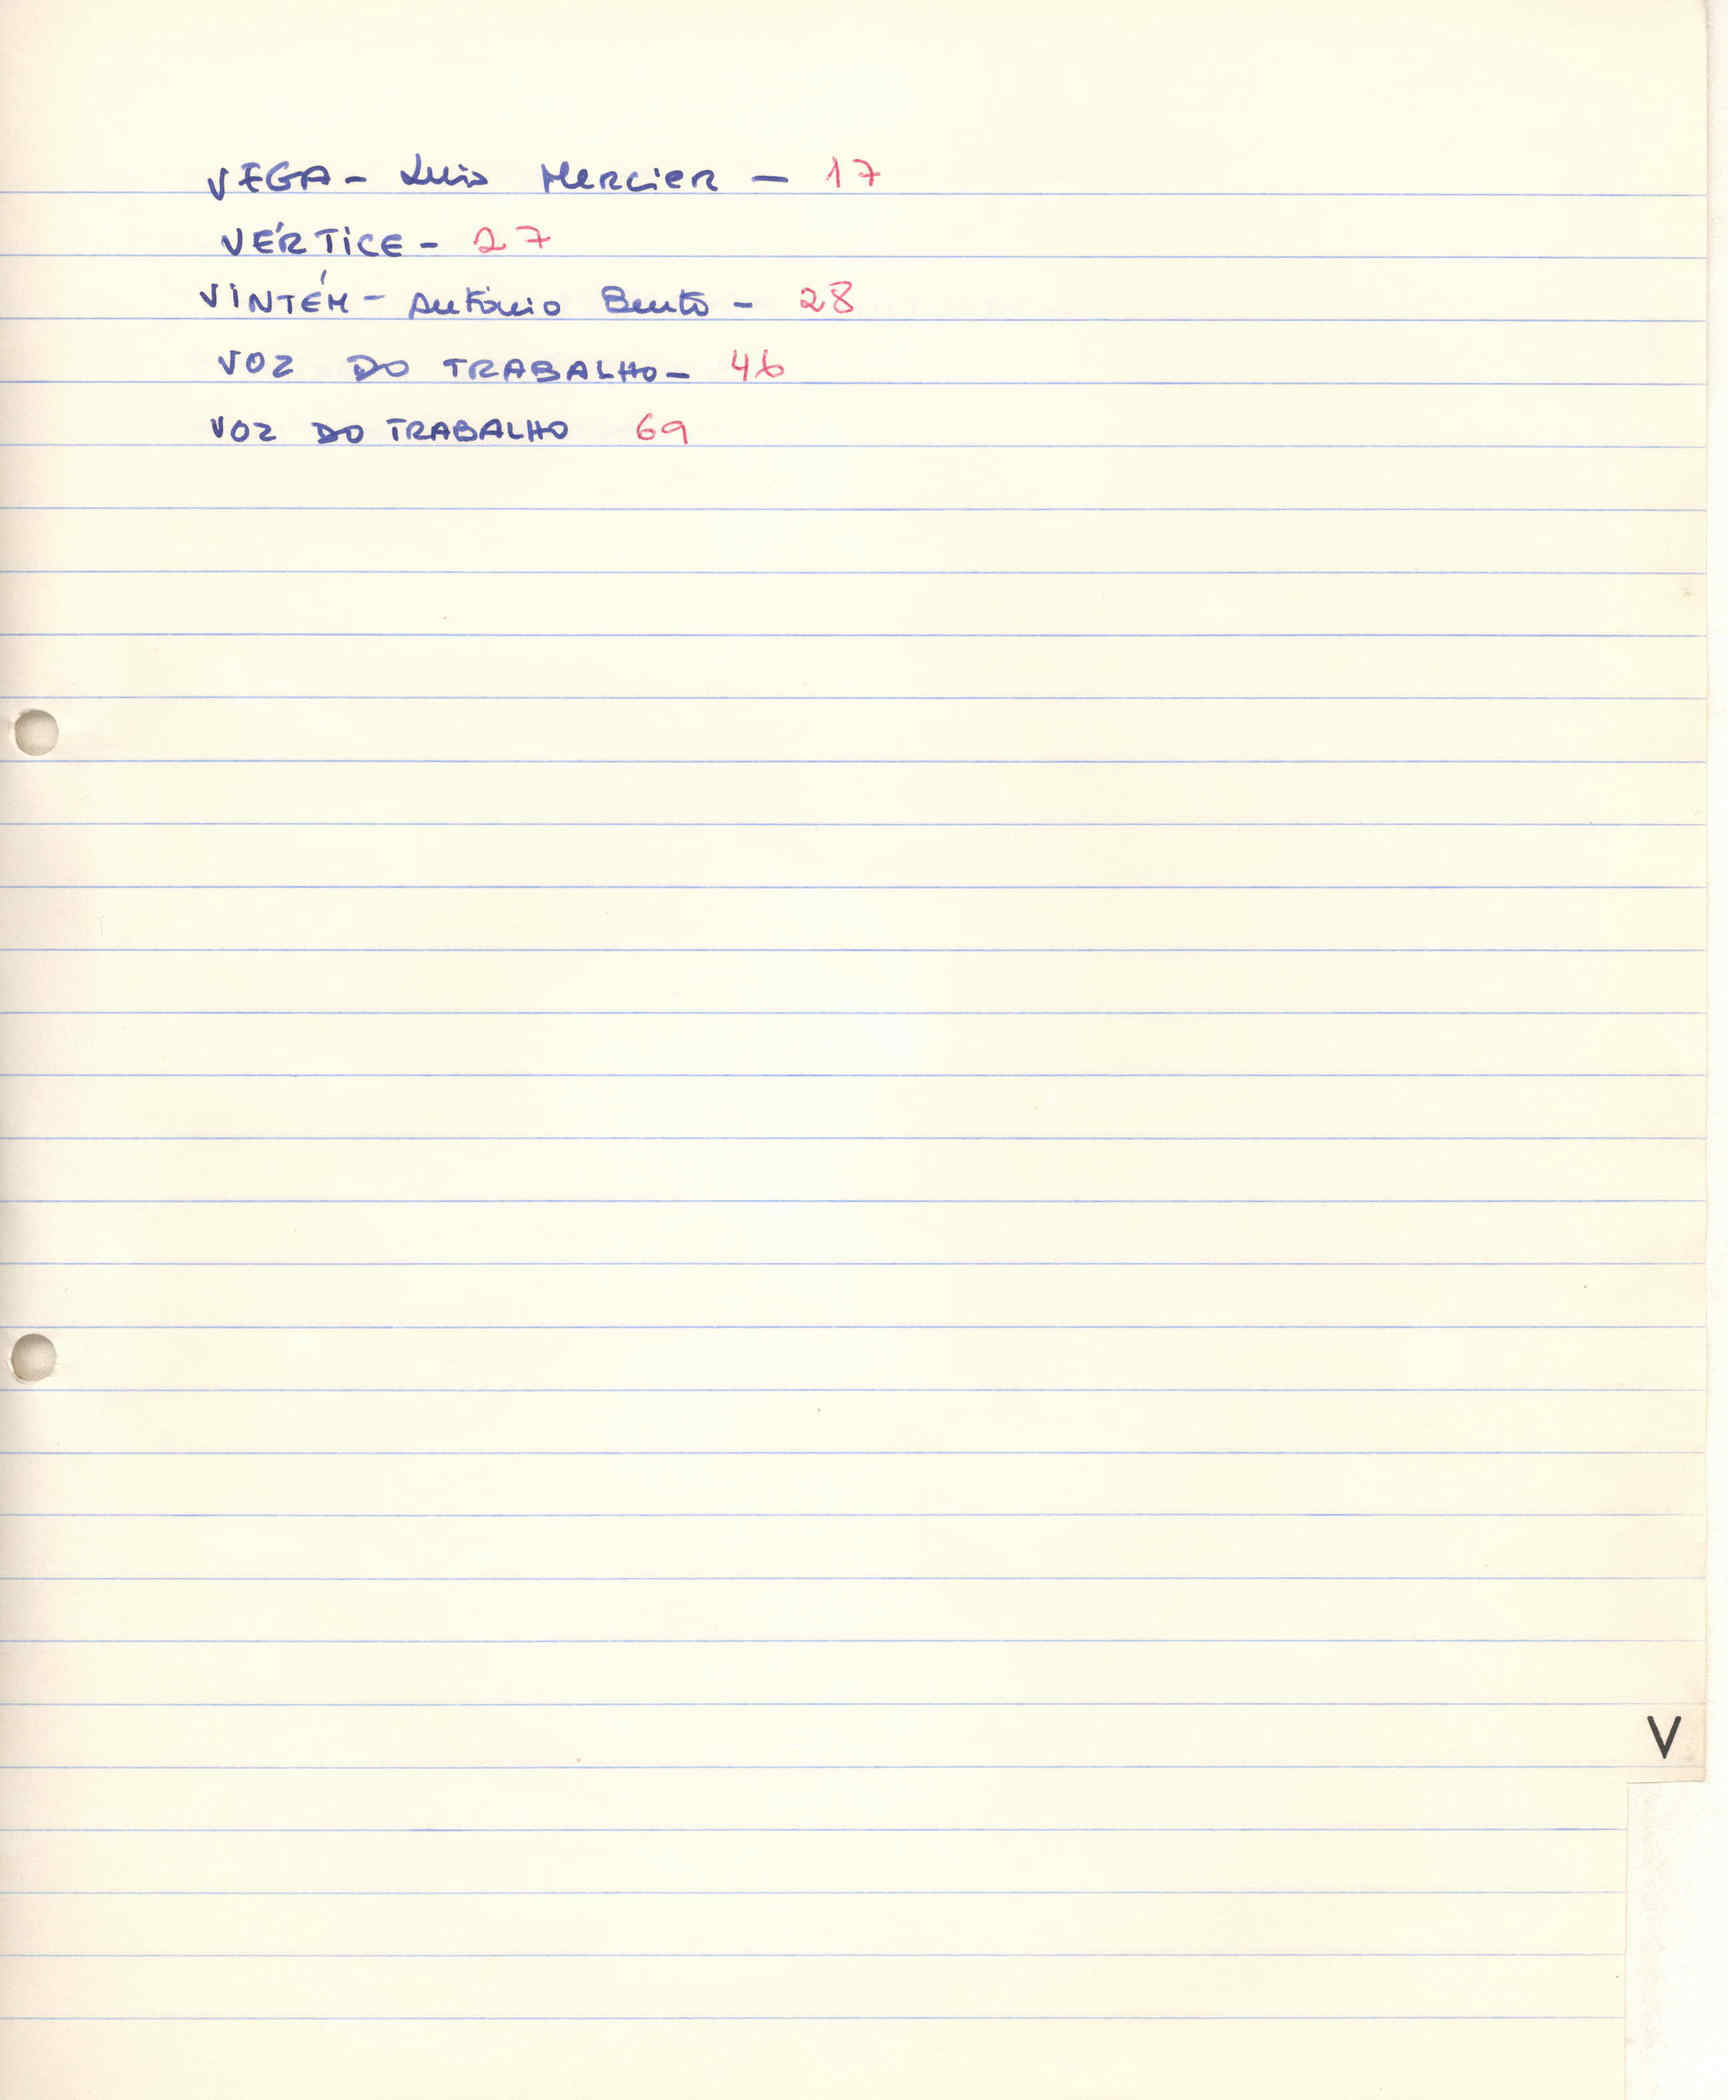 VEGA - Luis Mercier - 17
VÉRTICE - 27
VINTÉM - António Bento - 28
VOZ DO TRABALHO - 46
VOZ DO TRABALHO 69
V